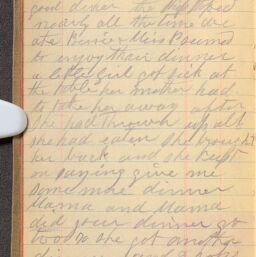 good dinner the
nearly all the time we
ate Bessie & Miss
to enjoy their dinner
a little girl got sick at
the table her mother had
to take her away after
she had throwh up all
she had eaten she brought
her back and she kept
on saying give me
some more dinner
Mama and Mama
did your dinner go
to so she got another